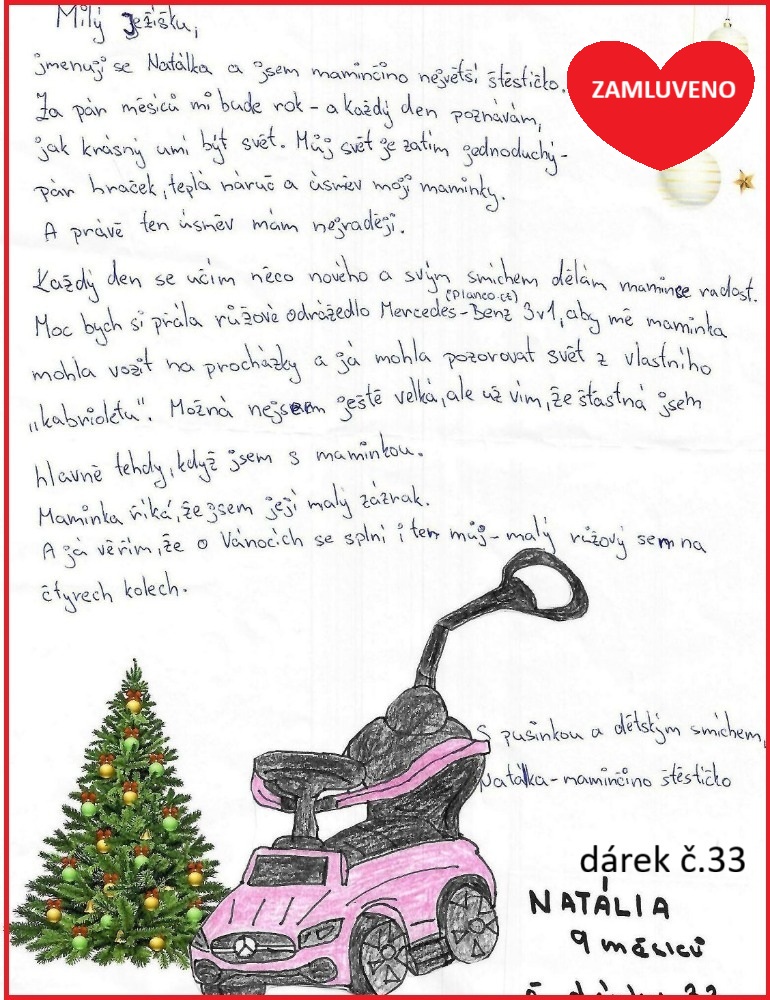 Milý Ježíšku,
jmenuji se Natálka a jsem maminčino největší štěstíčko.
ZAMLUVENO
Za pár měsíců mi bude rok - a každý den poznávám,
jak krásný umí být svět. Můj svět je zatím jednoduchý -
pár hraček, teplá náruč a úsměv mojí maminky.
A právě ten úsměv mám nejraději.
Každý den se učím něco nového a svým smíchem dělám mamince radost.
(Planeo.cz)
Moc bych si přála růžové odrážedlo Mercedes-Benz 3v1, aby mě maminka
mohla vozit na procházky a já mohla pozorovat svět z vlastního
„kabrioletu". Možná nejsem ještě velká, ale už vím, že šťastná jsem
hlavně tehdy, když jsem s maminkou.
Maminka říká, že jsem její malý zázrak.
A já věřím, že o Vánocích se splní i ten můj - malý růžový sen na
čtyřech kolech.
S pusinkou a dětským smíchem,
Natálka - maminčino štěstíčko
dárek č.33
NATÁLIA
9 měsíců